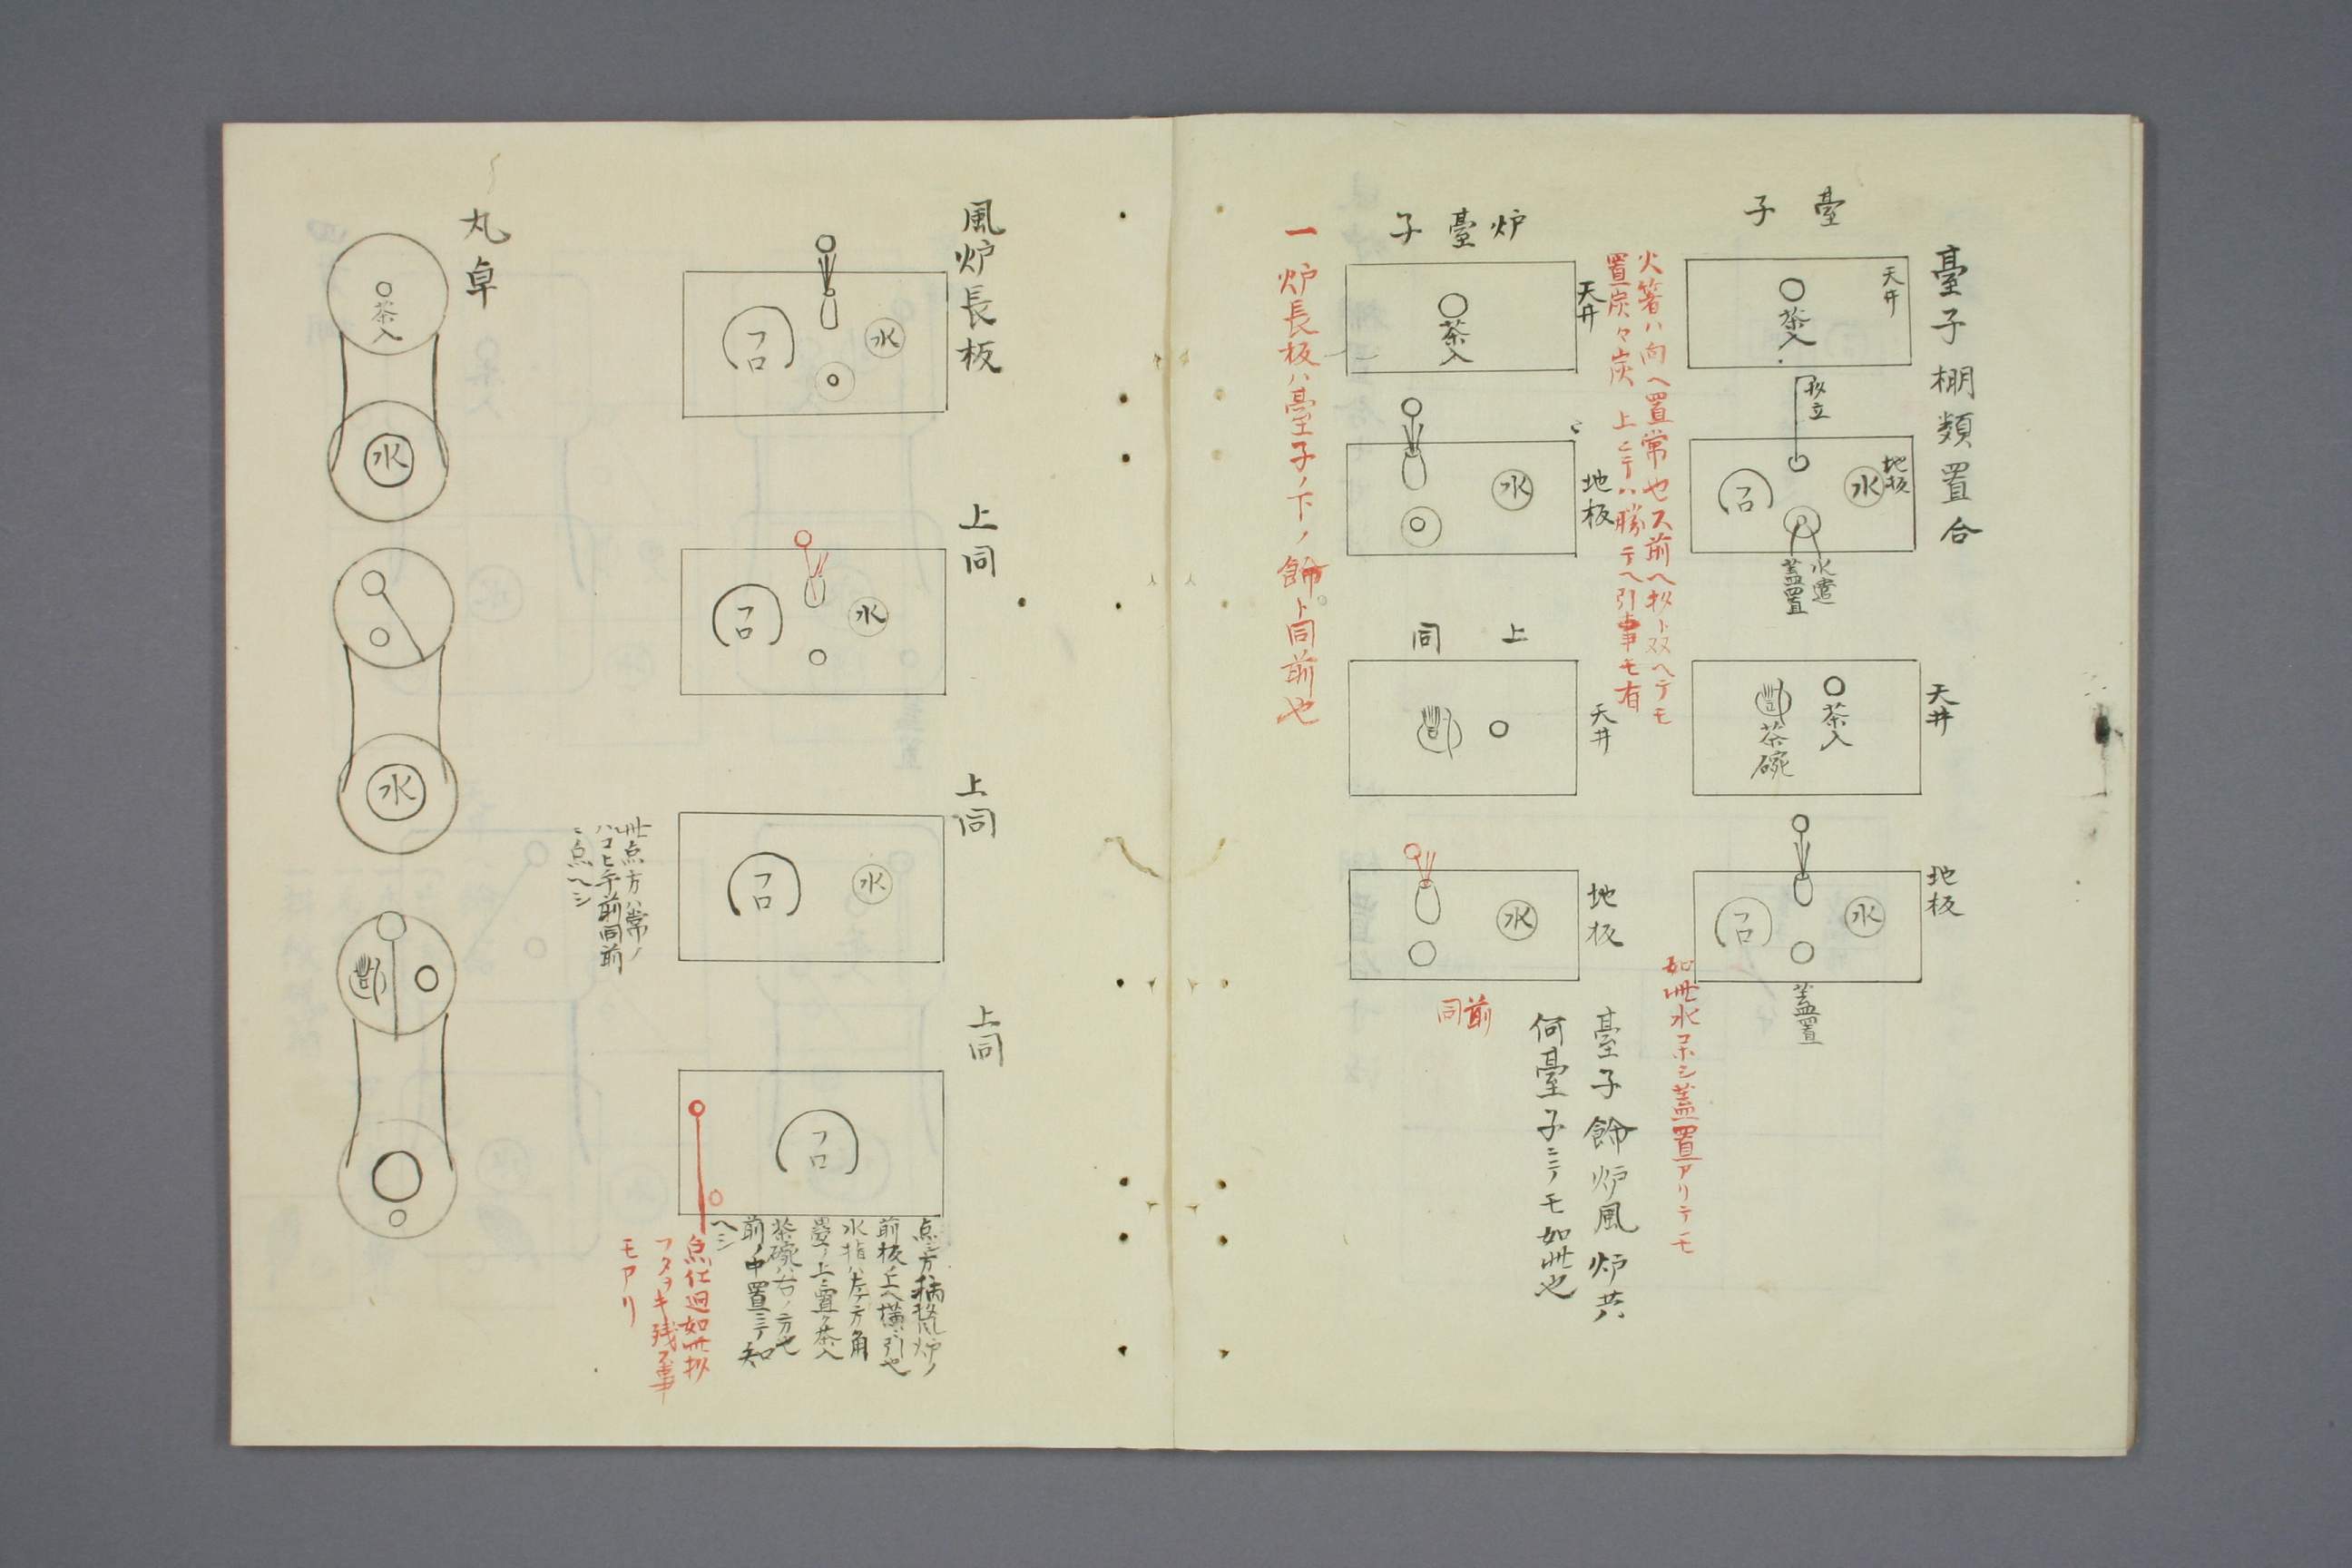 臺子棚類置合
臺子
天井
茶入
杓立
地板
水
フロ
水遣
蓋置
天井
茶入
茶碗
地板
水
フロ
蓋置
如此水コホシ蓋置アリテモ
火箸ハ向ヘ置常也又前ヘ杓ト双ヘテモ
置炭々炭上ニテハ勝手ヘ引事モ有
炉臺子
天井
茶入
地板
水
上同
天井
地板
水
前同
臺子餝炉風炉共
何臺子ニテモ如此也
一炉長板ハ臺子ノ下ノ餝ト同前也
風炉長板
水
フロ
上同
水
フロ
上同
水
フロ
此点方ハ常ノ
ハコヒ手前同前
ニ点ヘシ
上同
フロ
点シ方柄杓風炉ノ
前板ノ上ヘ横ニ引也
水指ハ左ノ方角
畳ノ上ニ置ク茶入
茶碗ハ右ノ方也
前ノ中置ニテ知
ヘシ
点仕廻如此杓
フタヲキ残ス事
モアリ
丸卓
茶入
水
水